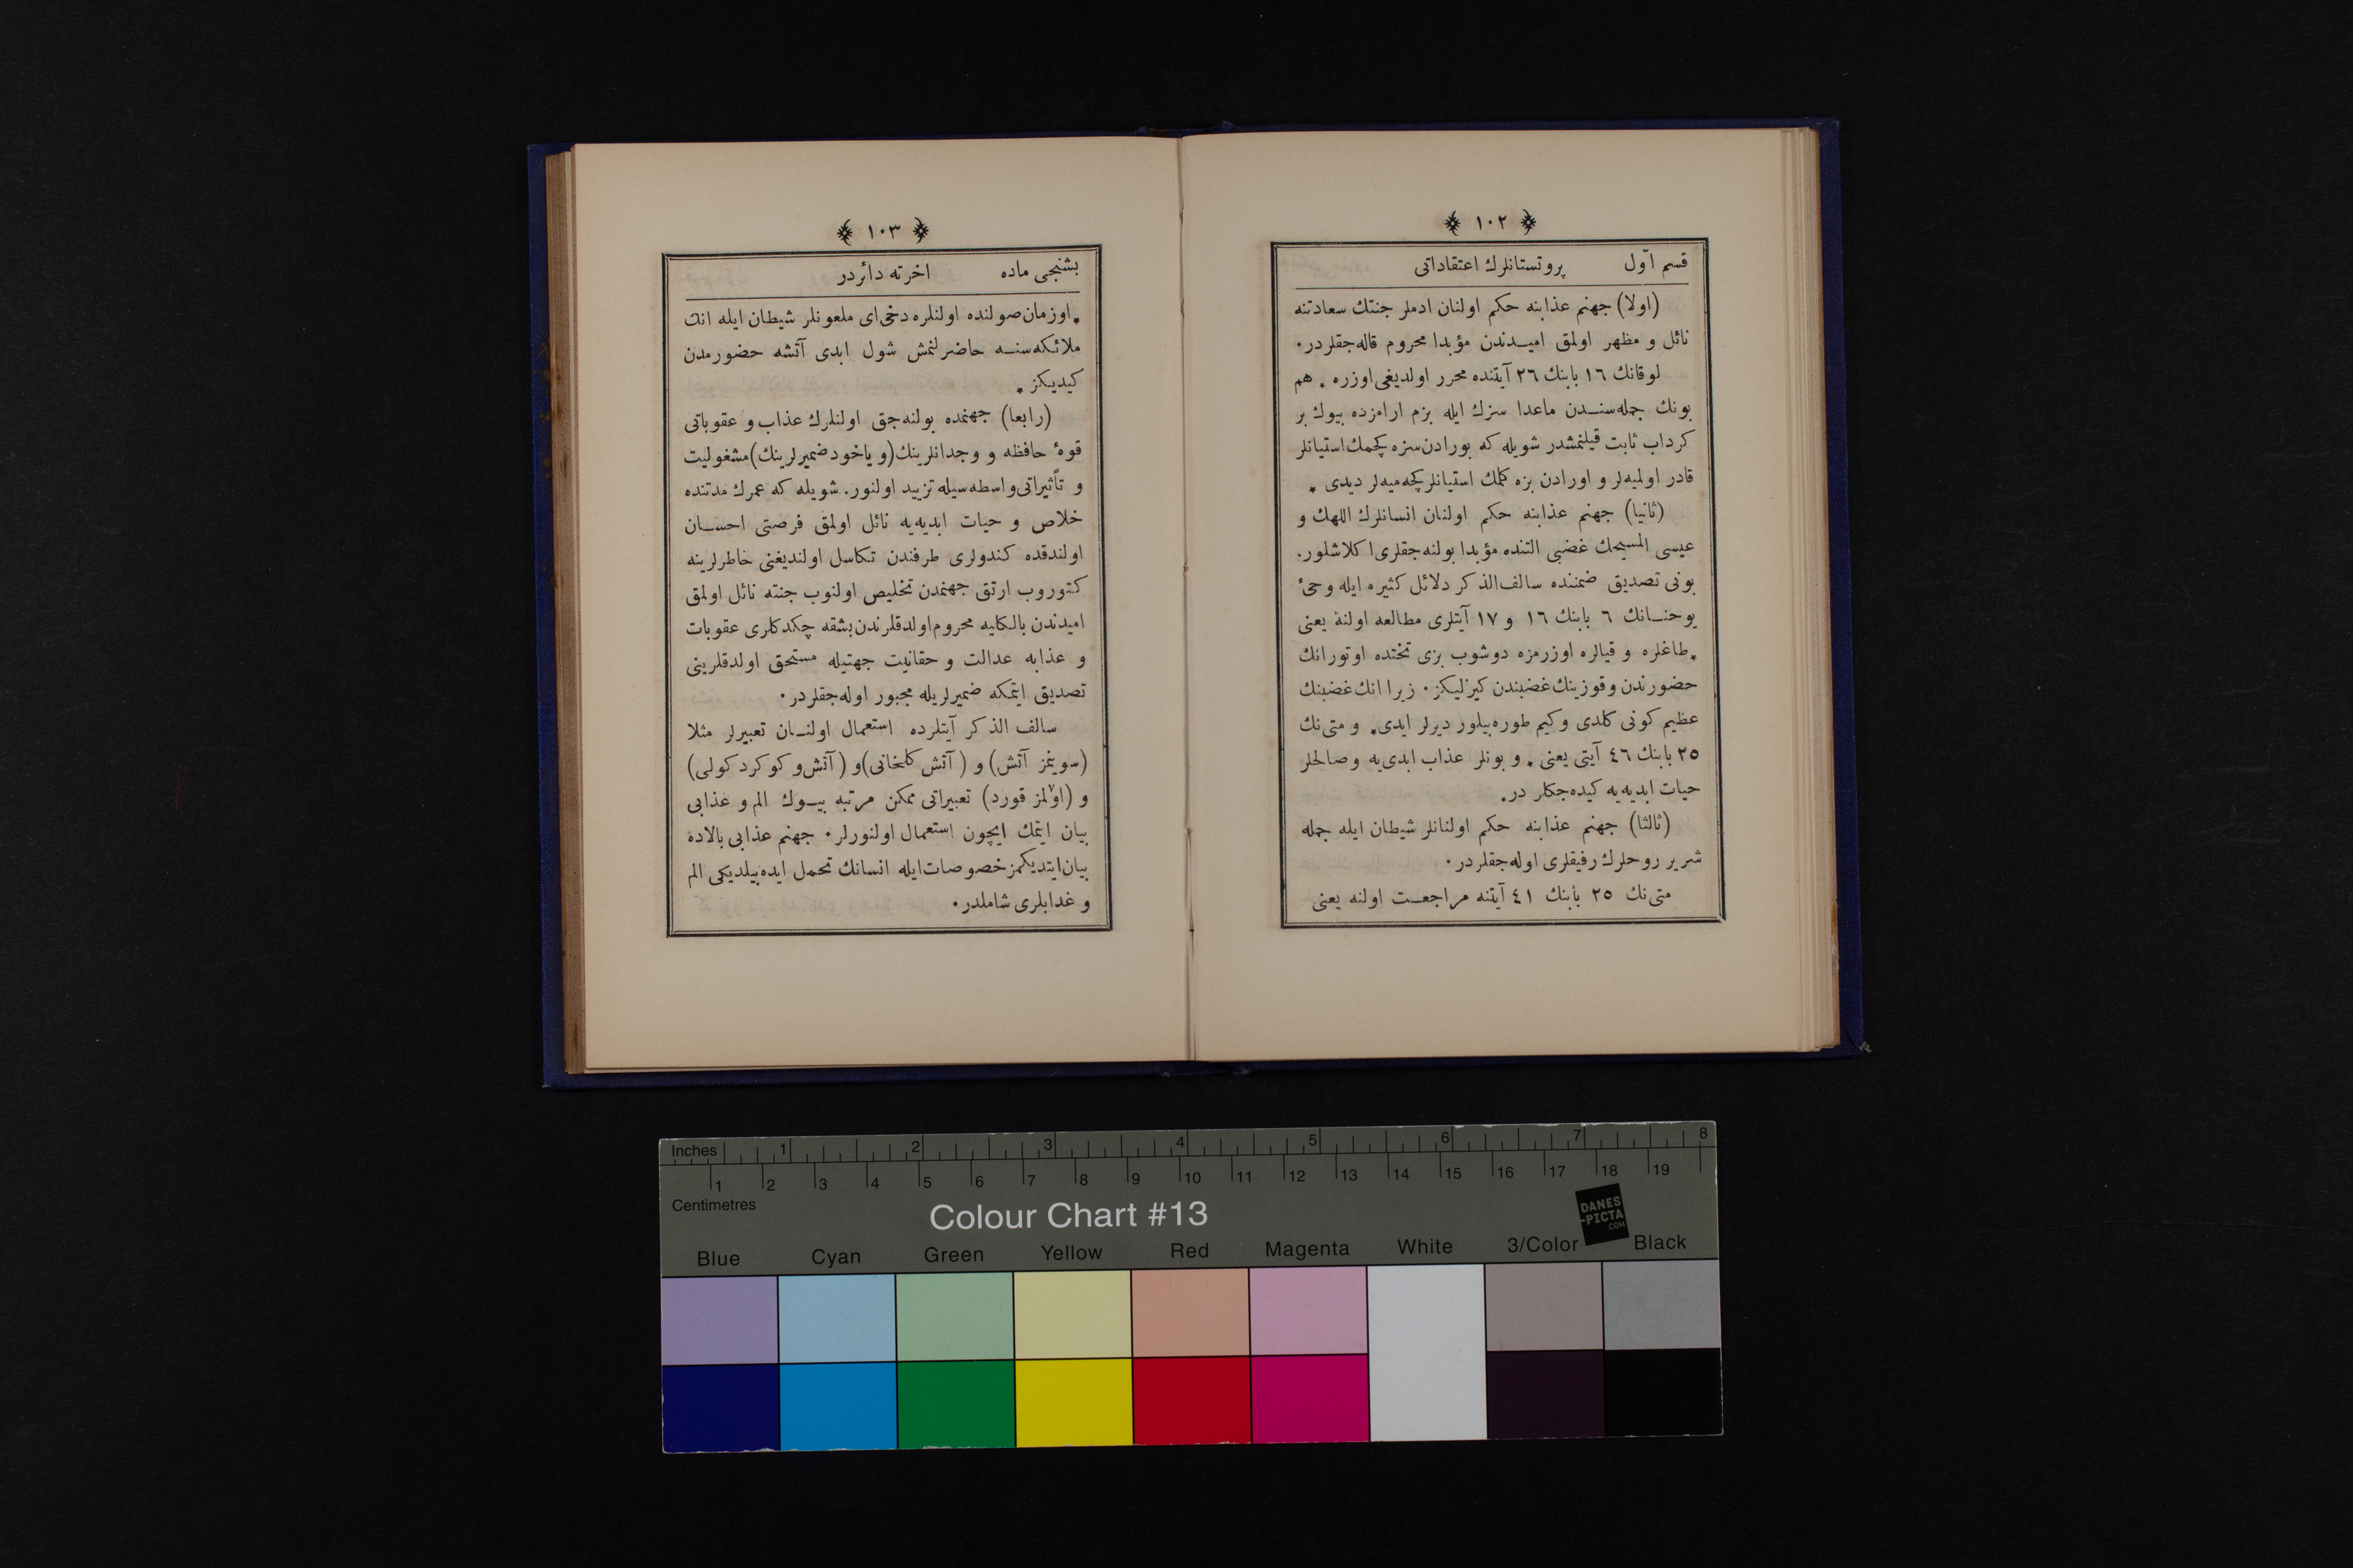 ﴿ ١٠٢ ﴾
قسم اوّل پروتستانلرك اعتقاداتى
(اولا) جهنم عذابنه حكم اولنان ادملر جنتك سعادتنه
نائل و مظهر اولمق اميـدندن مؤبدا محروم قاله‌جقلردر٠
لوقانك ١٦ بابنك ٢٦ آيتنده محرر اولديغى اوزره ٭ هم
بونك جمله‌سنـدن ماعدا سزك ايله بزم ارامزده بيوك بر
كرداب ثابت قيلنمشدر شويله كه بورادن سزه كچمك استيانلر
قادر اولميه‌لر و اورادن بزه كلمك استيانلر كچه‌ميه‌لر ديدى ٭
(ثانيا) جهنم عذابنه حكم اولنان انسانلرك اللهك و
عيسى المسيحك غضبى التنده مؤبدا بولنه‌جقلرى اكلاشلور.
بونى تصديق ضمننده سالف‌الذكر دلائل كثيره ايله وحىٔ
يوحنـانك ٦ بابنك ١٦ و ١٧ آيتلرى مطالعه اولنه يعنى
٭طاغلره و قيالره اوزرمزه دوشوب بزى تختده اوتورانك
حضورندن وقوزينك غضبندن كيزليكز٠ زيرا انك غضبنك
عظيم كونى كلدى وكيم طوره‌بيلور ديرلر ايدى٭ و متى‌نك
٢٥ بابنك ٤٦ آيتى يعنى ٭ و بونلر عذاب ابدى‌يه وصالحلر
حيات ابديه‌يه كيده‌جكلر در٭
(ثالثا) جهنم عذابنه حكم اولنانلر شيطان ايله جمله
شرير روحلرك رفيقلرى اوله‌جقلردر٠
متى‌نك ٢٥ بابنك ٤١ آيتنه مراجعـت اولنه يعنى
﴿ ١٠٣ ﴾
بشنجى ماده اخرته دائردر
٭اوزمان صولنده اولنلره دخى اى ملعونلر شيطان ايله انك
ملائكه‌سنـه حاضرلنمش شول ابدى آتشه حضورمدن
كيديكز ٭
(رابعا) جهنمده بولنه‌جق اولنلرك عذاب و عقوباتى
قوهٔ حافظه و وجدانلرينك(و ياخود ضميرلرينك)مشغوليت
و تأثيراتى واسطه‌سيله تزييد اولنور. شويله كه عمرك مدتنده
خلاص و حيات ابديه‌يه نائل اولمق فرصتى احسـان
اولندقده كندولرى طرفندن تكاسل اولنديغنى خاطرلرينه
كتوروب ارتق جهنمدن تخليص اولنوب جنته نائل اولمق
اميدندن بالكليه محروم اولدقلرندن بشقه چكدكلرى عقوبات
و عذابه عدالت و حقانيت جهتيله مستحق اولدقلرينى
تصديق ايتمكه ضميرلريله مجبور اوله‌جقلردر٠
سالف الذكر آيتلرده استعمال اولنـان تعبيرلر مثلا
(سوينمز آتش) و (آتش كلخانى)و (آتش و كوكرد كولى)
و (اولمز قورد) تعبيراتى ممكن مرتبه بيـوك الم و عذابى
بيان ايتمك ايچون استعمال اولنورلر٠ جهنم عذابى بالاده
بيان ايتديكمز خصوصات ايله انسانك تحمل ايده‌بيلديكى الم
و غدابلرى شاملدر٠
Inches 1 2 3 4 5 6 7 8
1 2 3 4 5 6 7 8 9 10 11 12 13 14 15 16 17 18 19
Centimetres
Colour Chart #13
DANES
-PICTA
.COM
Blue Cyan Green Yellow Red Magenta White 3/Color Black